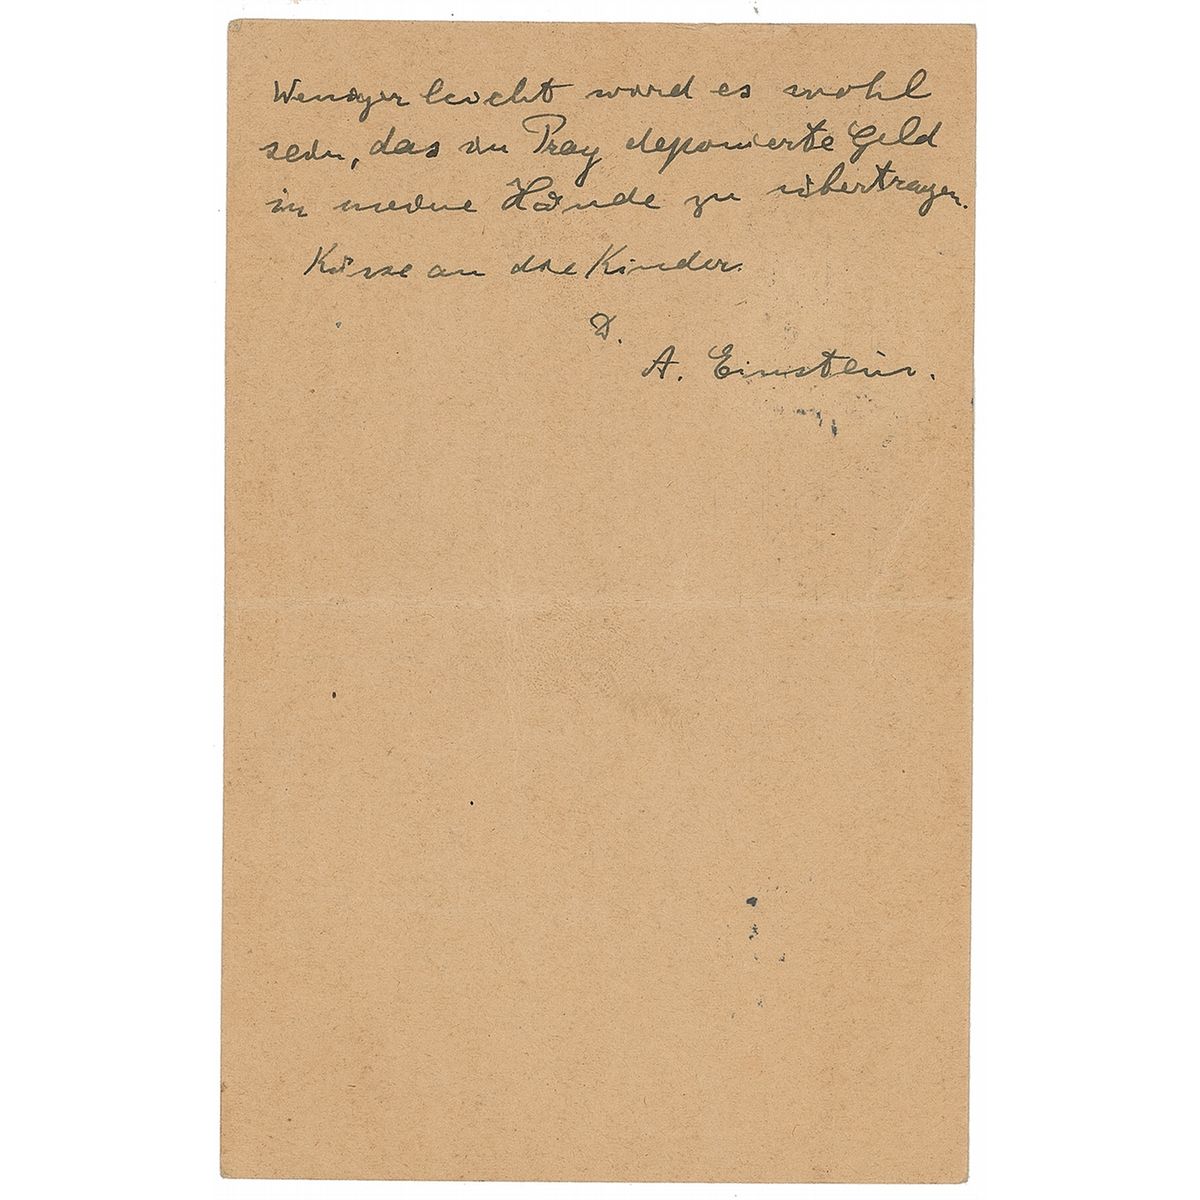 Weniger leicht wird es wohl
sein, das in Prag deponierte Geld
in meine Hände zu übertragen.
Küsse an die Kinder.
D.
A. Einstein.